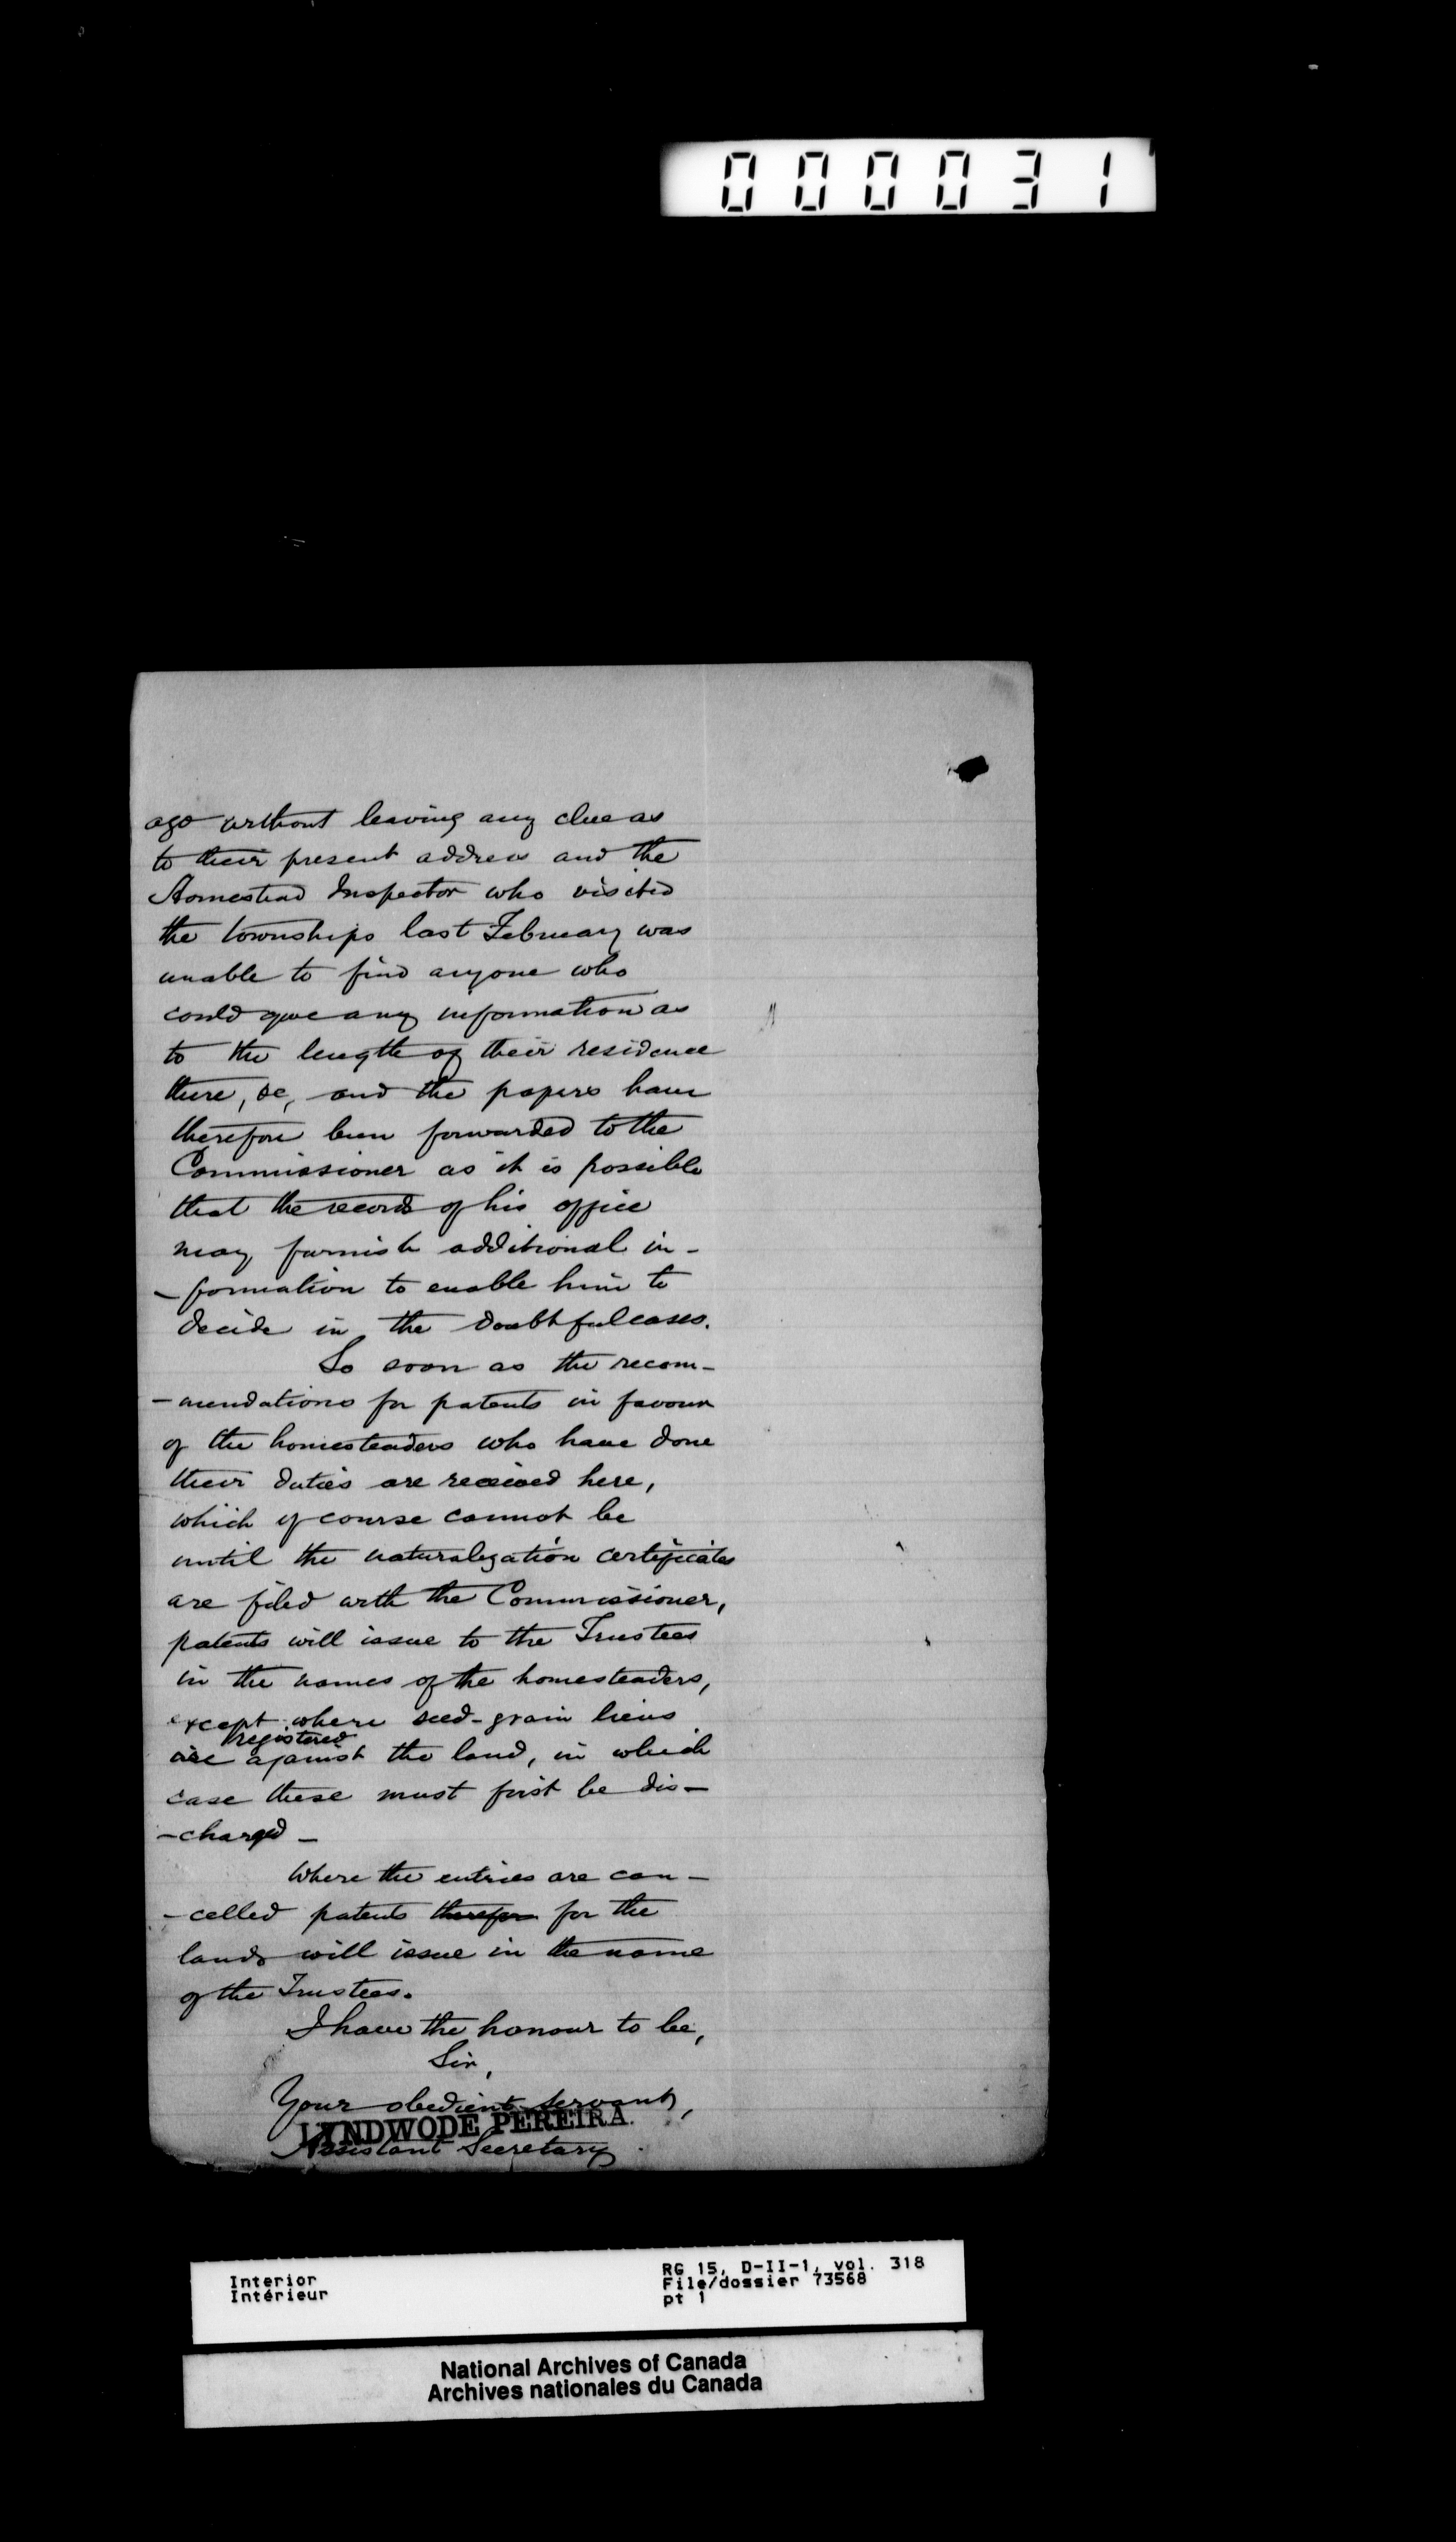 000031
ago without leaving any clue as
to their present address and the
Homestead Inspector who visited
the townships last February was
unable to find anyone who
could give any information as
to the length of their residence
there, &c, and the papers have
therefore been forwarded to the
Commissioner as it is possible
that the records of his office
may furnish additional in-
-formation to enable him to
decide in the doubtful cases.
So soon as the recom-
-mendations for patents in favour
of the homesteaders who have done
their duties are received here,
which of course cannot be
until the naturalization certificates
are filed with the Commissioner,
patents will issue to the Trustees
in the names of the homesteaders,
except where seed-grain liens
registered
are against the land, in which
case these must first be dis-
-charged -
Where the entries are can-
-celled patents therefor for the
lands will issue in the name
of the Trustees.
I have the honour to be,
Sir,
Your obedient servant,
LYNDWODE PEREIRA.
Assistant Secretary
Interior
Intérieur
RG 15, D-II-1, vol. 318
File/dossier 73568
pt 1
National Archives of Canada
Archives nationales du Canada